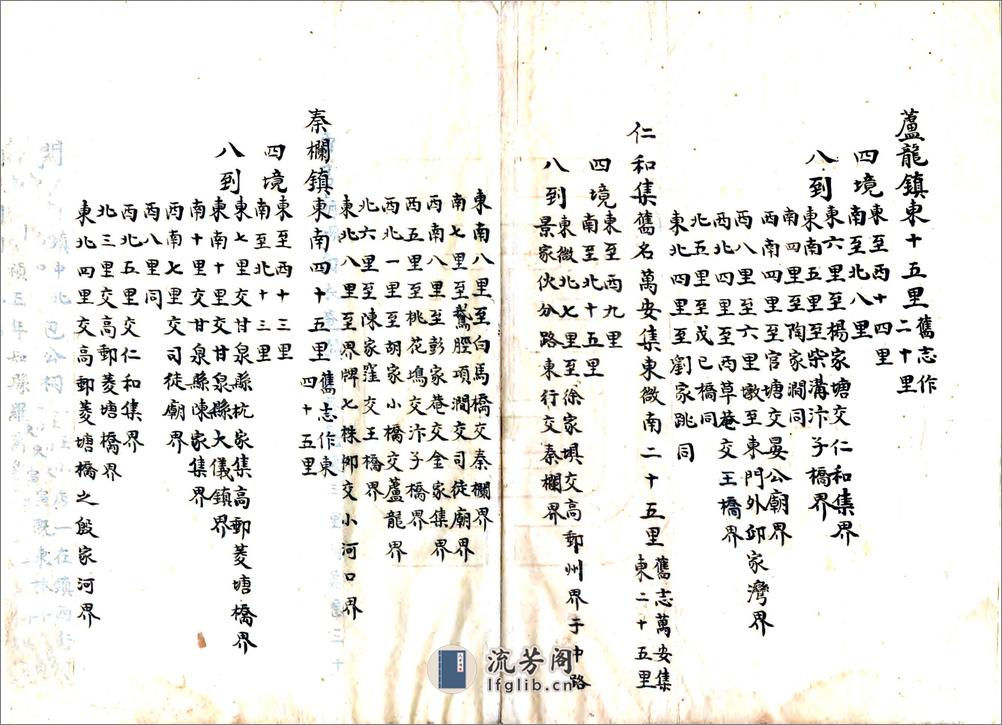 蘆龍鎮東十五里舊志作二十里
四境東至西十四里
南至北八里
八到東六里至楊家塘交仁和集界
東南五里至柴溝汴子橋界
南四里至陶家澗同
西南四里至官塘交晏公廟界
西八里至六里墩至東門外邱家灣界
西北四里至西草菴交王橋界
北五里至戊己橋同
東北四里至劉家跳同
仁和集舊名萬安集東微南二十五里舊志萬安集東二十五里
四境東至西九里
南至北十五里
八到東微北七里至徐家垻交高郵州界于中路
景家伙分路東行交秦欄界
東南八里至白馬橋交秦欄界
南七里至鵞脛項澗交司徒廟界
西南八里至彭家菴交金家集界
西五里至桃花塢交汴子橋界
西北一里至胡家小橋交蘆龍界
北六里至陳家窪交王橋界
東北八里至界牌七株柳交小河口界
秦欄鎮東南四十五里舊志作東四十五里
四境東至西十三里
南至北十三里
八到東七里交甘泉縣杭家集高郵菱塘橋界
東南十里交甘泉縣大儀鎮界
南十里交甘泉縣陳家集界
西南七里交司徒廟界
西八里同
西北五里交仁和集界
北三里交高郵菱塘橋界
東北四里交高郵菱塘橋之殷家河界
流芳阁
lfglib.cn